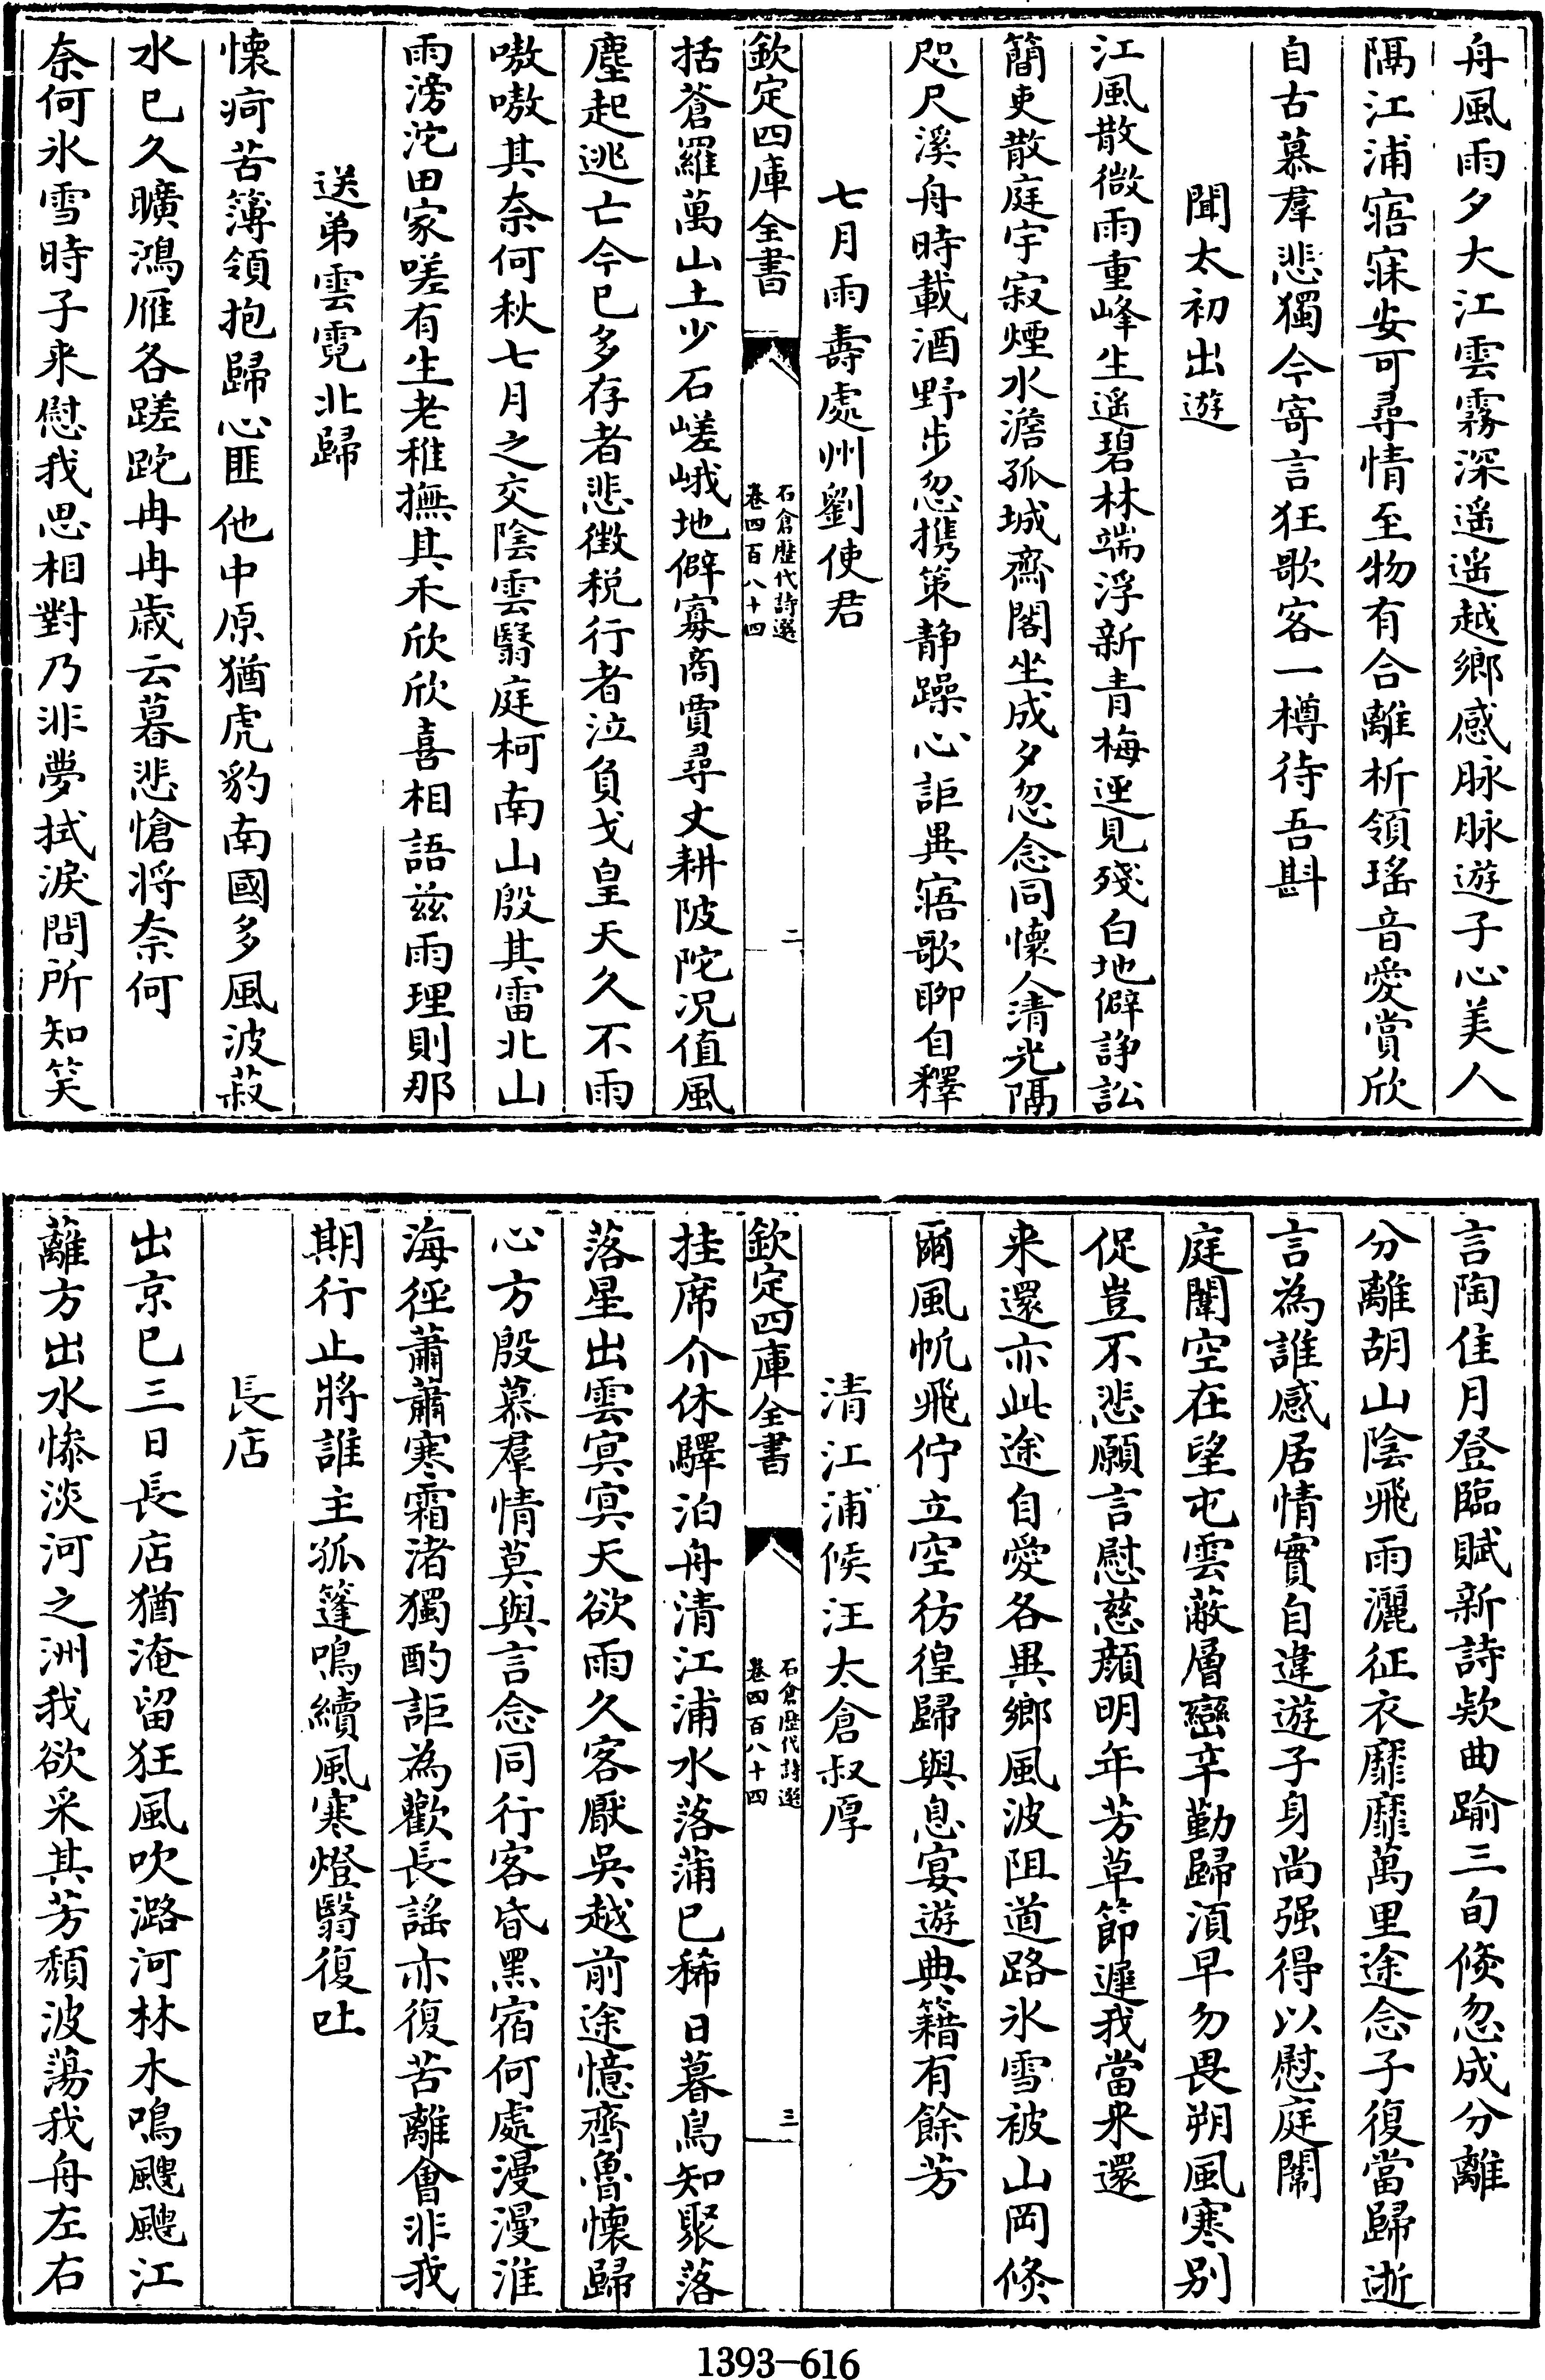 舟風雨夕大江雲霧深遥遥越鄉感脉脉遊子心美人
隔江浦寤寐安可尋情至物有合離析領瑤音愛賞欣
自古慕羣悲獨今寄言狂歌客一樽待吾斟
聞太初出遊
江風散微雨重峰生遥碧林端浮新青梅逕見殘白地僻諍訟
簡吏散庭宇寂煙水澹孤城齋閣坐成夕忽念同懷人清光隔
咫尺溪舟時載酒野步忽携策静躁心詎異寤歌聊自釋
七月雨壽處州劉使君
欽定四庫全書
石倉歷代詩選
卷四百八十四
二
括蒼羅萬山土少石嵯峨地僻寡商賈尋丈耕陂陀况值風
塵起逃亡今已多存者悲徵税行者泣負戈皇天久不雨
嗷嗷其奈何秋七月之交陰雲翳庭柯南山殷其雷北山
雨滂沱田家嗟有生老稚撫其禾欣欣喜相語兹雨理則那
送弟雲霓北歸
懷痾苦簿領抱歸心匪他中原猶虎豹南國多風波菽
水已久曠鴻雁各蹉跎冉冉歲云暮悲愴將奈何
奈何氷雪時子来慰我思相對乃非夢拭淚問所知笑
言陶佳月登臨賦新詩欵曲踰三旬倐忽成分離
分離胡山陰飛雨灑征衣靡靡萬里途念子復當歸逝
言為誰感居情實自違遊子身尚强得以慰庭闈
庭闈空在望屯雲蔽層巒辛勤歸湏早勿畏朔風寒别
促豈不悲願言慰慈顔明年芳草節遲我當来還
来還亦此途自愛各異鄉風波阻道路氷雪被山岡倐
爾風帆飛佇立空彷徨歸與息宴遊典籍有餘芳
清江浦候汪太倉叔厚
欽定四庫全書
石倉歷代詩選
卷四百八十四
三
挂席介休驛泊舟清江浦水落蒲已稀日暮鳥知聚落
落星出雲冥冥天欲雨久客厭吳越前途憶齊魯懷歸
心方殷慕羣情莫與言念同行客昏黑宿何處漫漫淮
海徑蕭蕭寒霜渚獨酌詎為歡長謡亦復苦離會非我
期行止將誰主孤篷鳴續風寒燈翳復吐
長店
出京已三日長店猶淹留狂風吹潞河林木鳴颼颼江
蘺方出水惨淡河之洲我欲采其芳頽波蕩我舟左右
1393-616